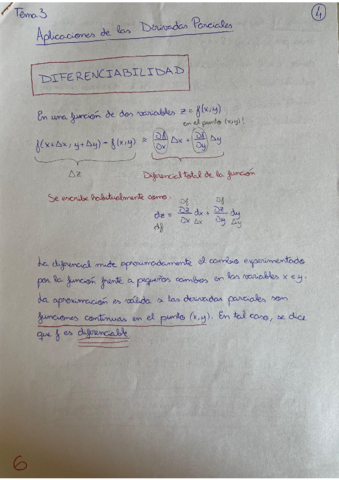 Tema 3
4
Aplicaciones de las Derivadas Parciales
DIFERENCIABILIDAD
En una función de dos variables z = f(x,y)
en el punto (x,y)!
f(x+Δx, y+Δy) - f(x,y) ≅ ∂f/∂x Δx + ∂f/∂y Δy
Δz
Diferencial total de la función
Se escribe habitualmente como:
∂f ∂f
dz = ∂z/∂x dx + ∂z/∂y dy
df Δx Δy
La diferencial mide aproximadamente el cambio experimentado
por la función frente a pequeños cambios en las variables x e y.
La aproximación es válida si las derivadas parciales son
funciones continuas en el punto (x,y). En tal caso, se dice
que f es diferenciable
6